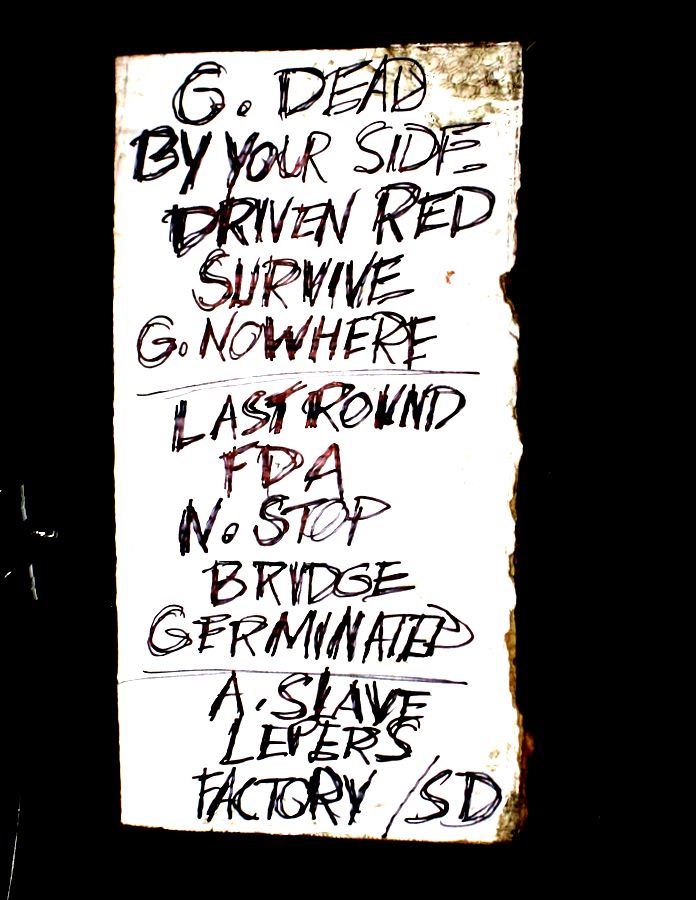 G. DEAD
BY YOUR SIDE
DRIVEN RED
SURVIVE
G. NOWHERE
LAST ROUND
FDA
N. STOP
BRIDGE
GERMINATED
A. SLAVE
LEPERS
FACTORY / SD